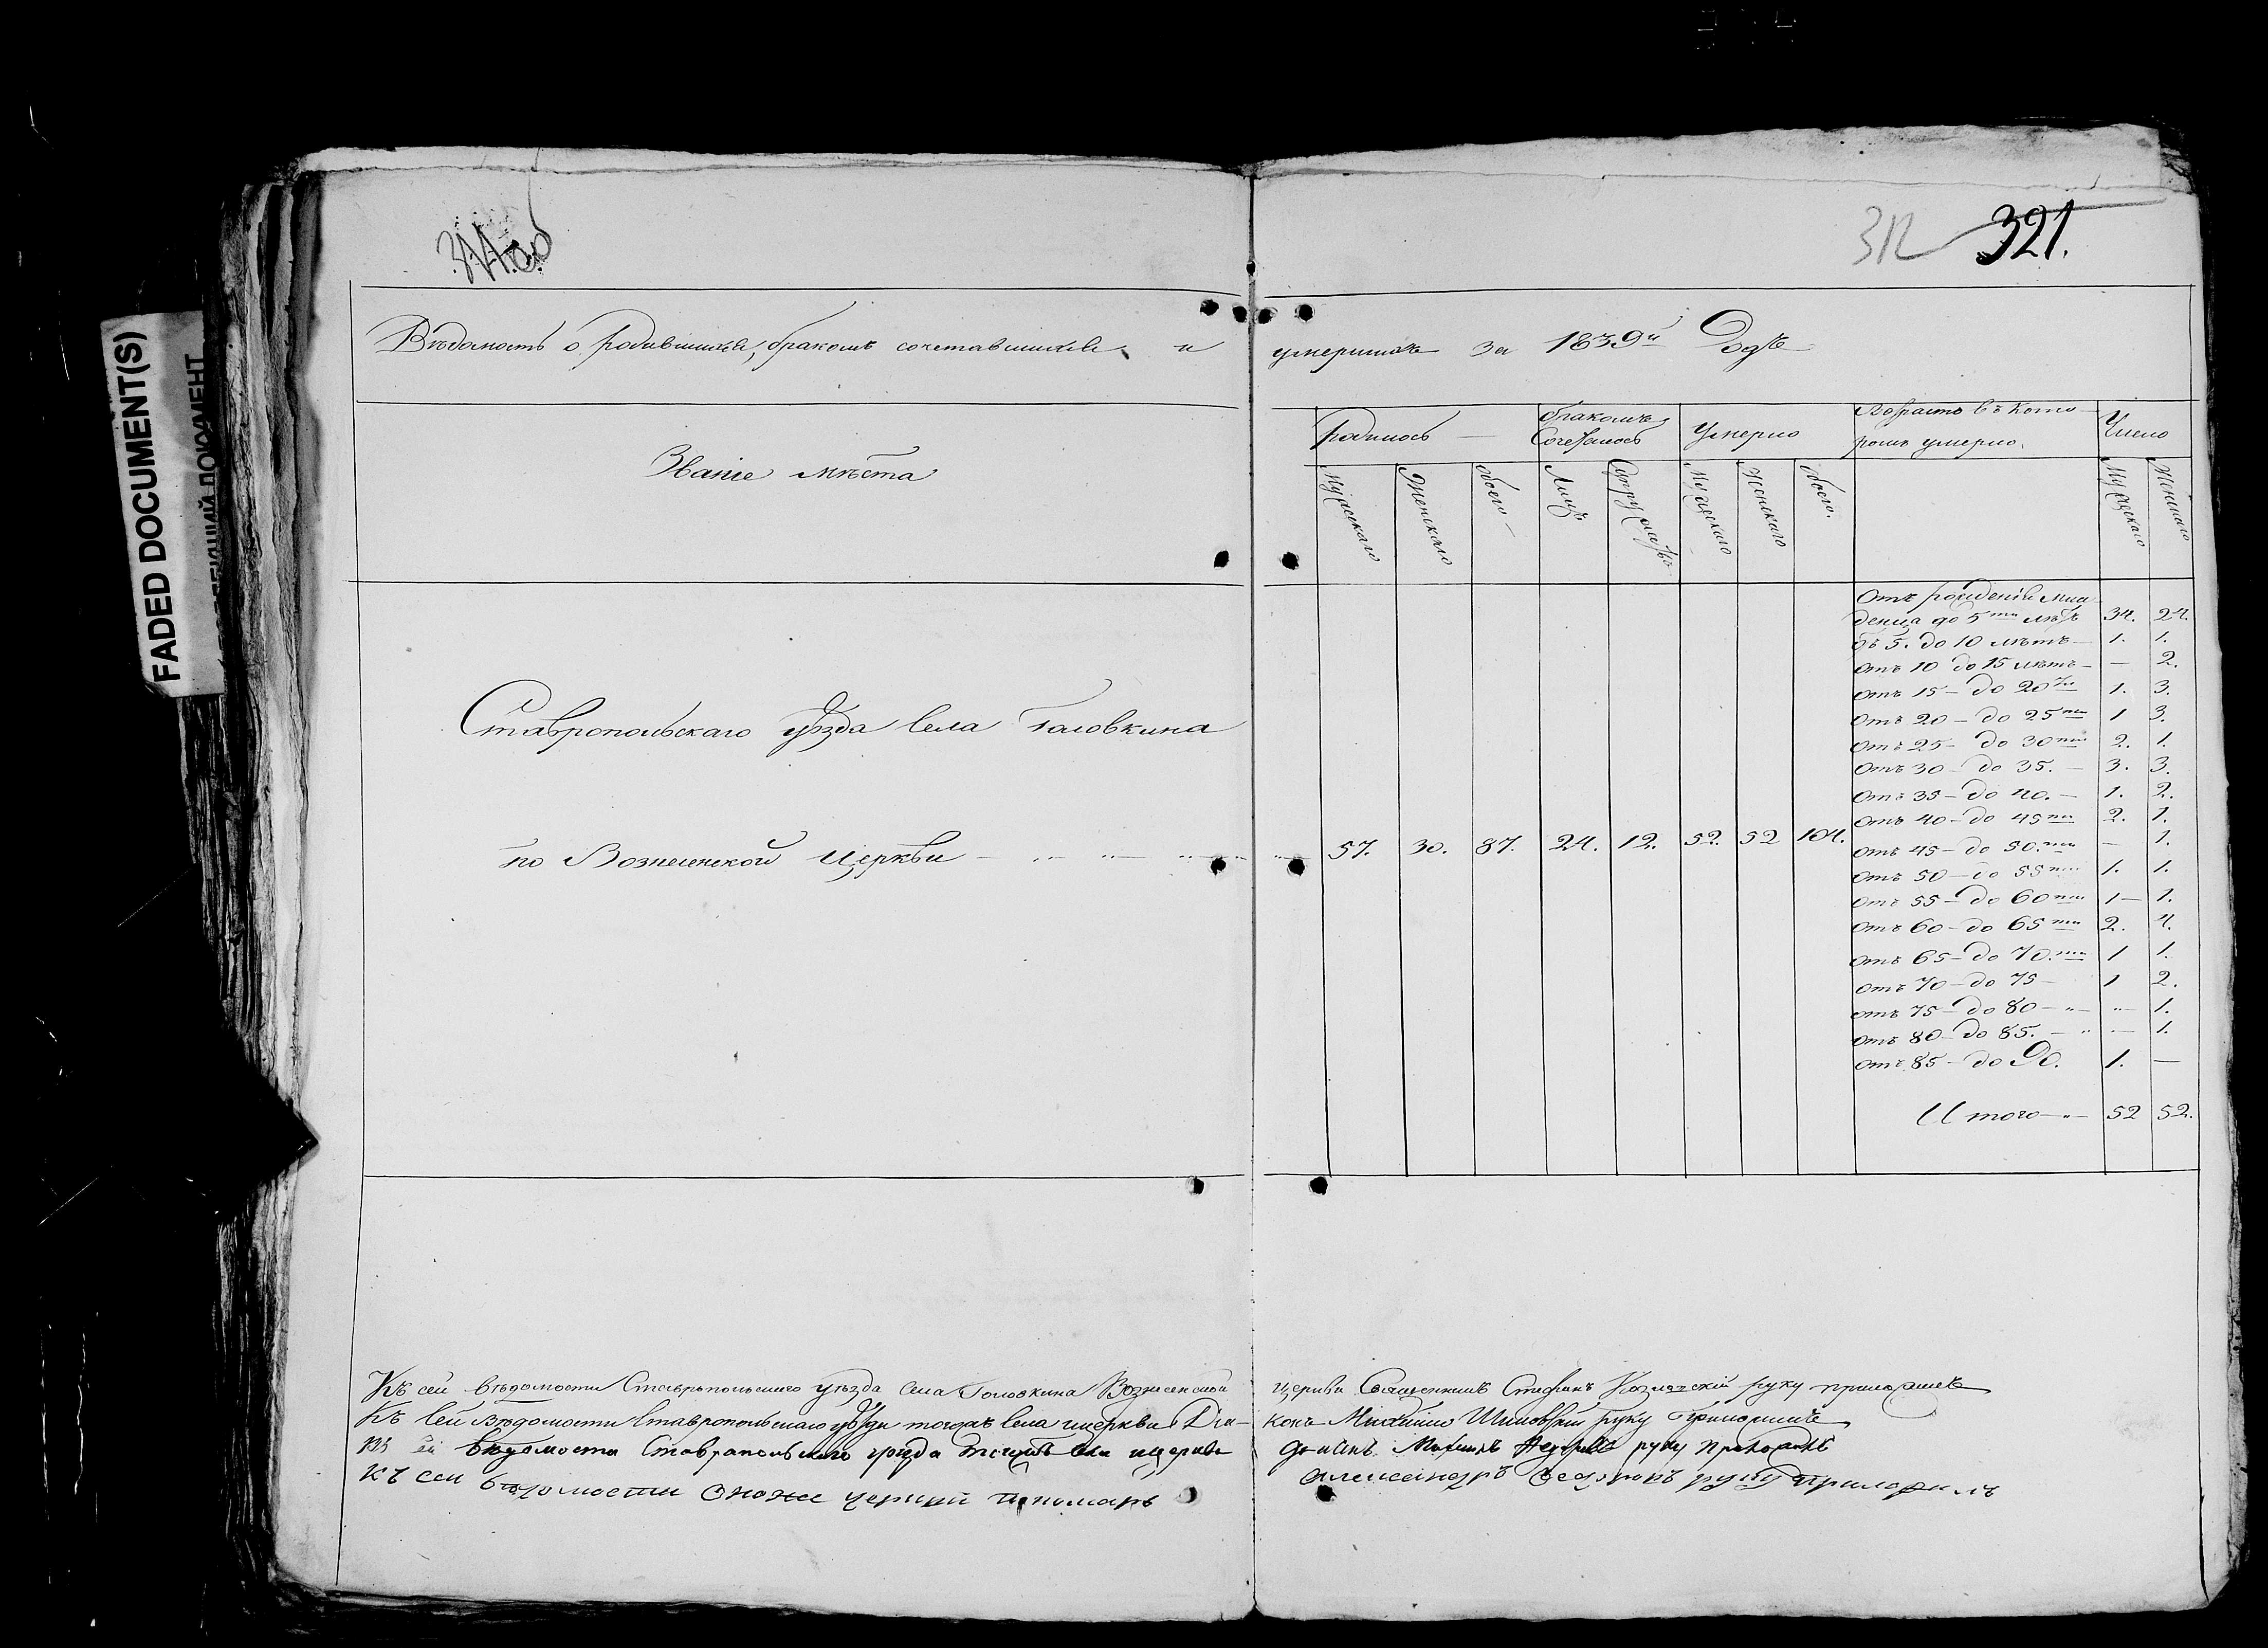 FADED DOCUMENT(S)
ДОКУМЕНТ
312 321.
Вѣдомость о родившихся, бракомъ сочетавшихся и умершихъ за 1839й Годъ
Званіе мѣста
Родилось Бракомъ Сочеталось Умерло Возрастъ въ кото-ромъ умерло Число
Мужескаго Женскаго обоего Лицъ Супружествъ Мужескаго Женскаго обоего. Мужескаго Женскаго
Ставропольскаго уѣзда Села Головкина
по Вознесенской Церкви 57. 30. 87. 24. 12. 52. 52 104.
Отъ рожденія мла-
денца до 5ти лѣтъ 34. 24.
съ 5. до 10 лѣтъ 1. 1.
отъ 10 до 15 лѣтъ — 2.
отъ 15 — до 20ти 1. 3.
отъ 20 — до 25ти 1 3.
отъ 25 — до 30ти 2. 1.
отъ 30 — до 35. — 3. 3.
отъ 35 — до 40. — 1. 2.
отъ 40 — до 45ти 2. 1.
отъ 45 — до 50.ти — 1.
отъ 50 — до 55ти 1. 1.
отъ 55 — до 60ти 1 — 1.
отъ 60 — до 65ти 2. 4.
отъ 65 — до 70.ти 1 1.
отъ 70 — до 75 — 1 2.
отъ 75 — до 80 — „ — „ — 1.
отъ 80 — до 85. — „ — 1.
отъ 85 — до 90. 1. —
Итого — „ — 52 52.
Къ сей вѣдомости Ставропольскаго уѣзда села Головкина Вознесенской церкви Священникъ Стефанъ Козловскій руку приложилъ
Къ сей Вѣдомости Ставропольскаго уѣзда тогожъ села и церкви Діа-конъ Михаило руку Приложилъ
Къ сей вѣдомости Ставропольскаго уѣзда тогожъ села и церкви руку приложилъ
къ сей вѣдомости оноже церкви пономарь Александръ руку приложилъ